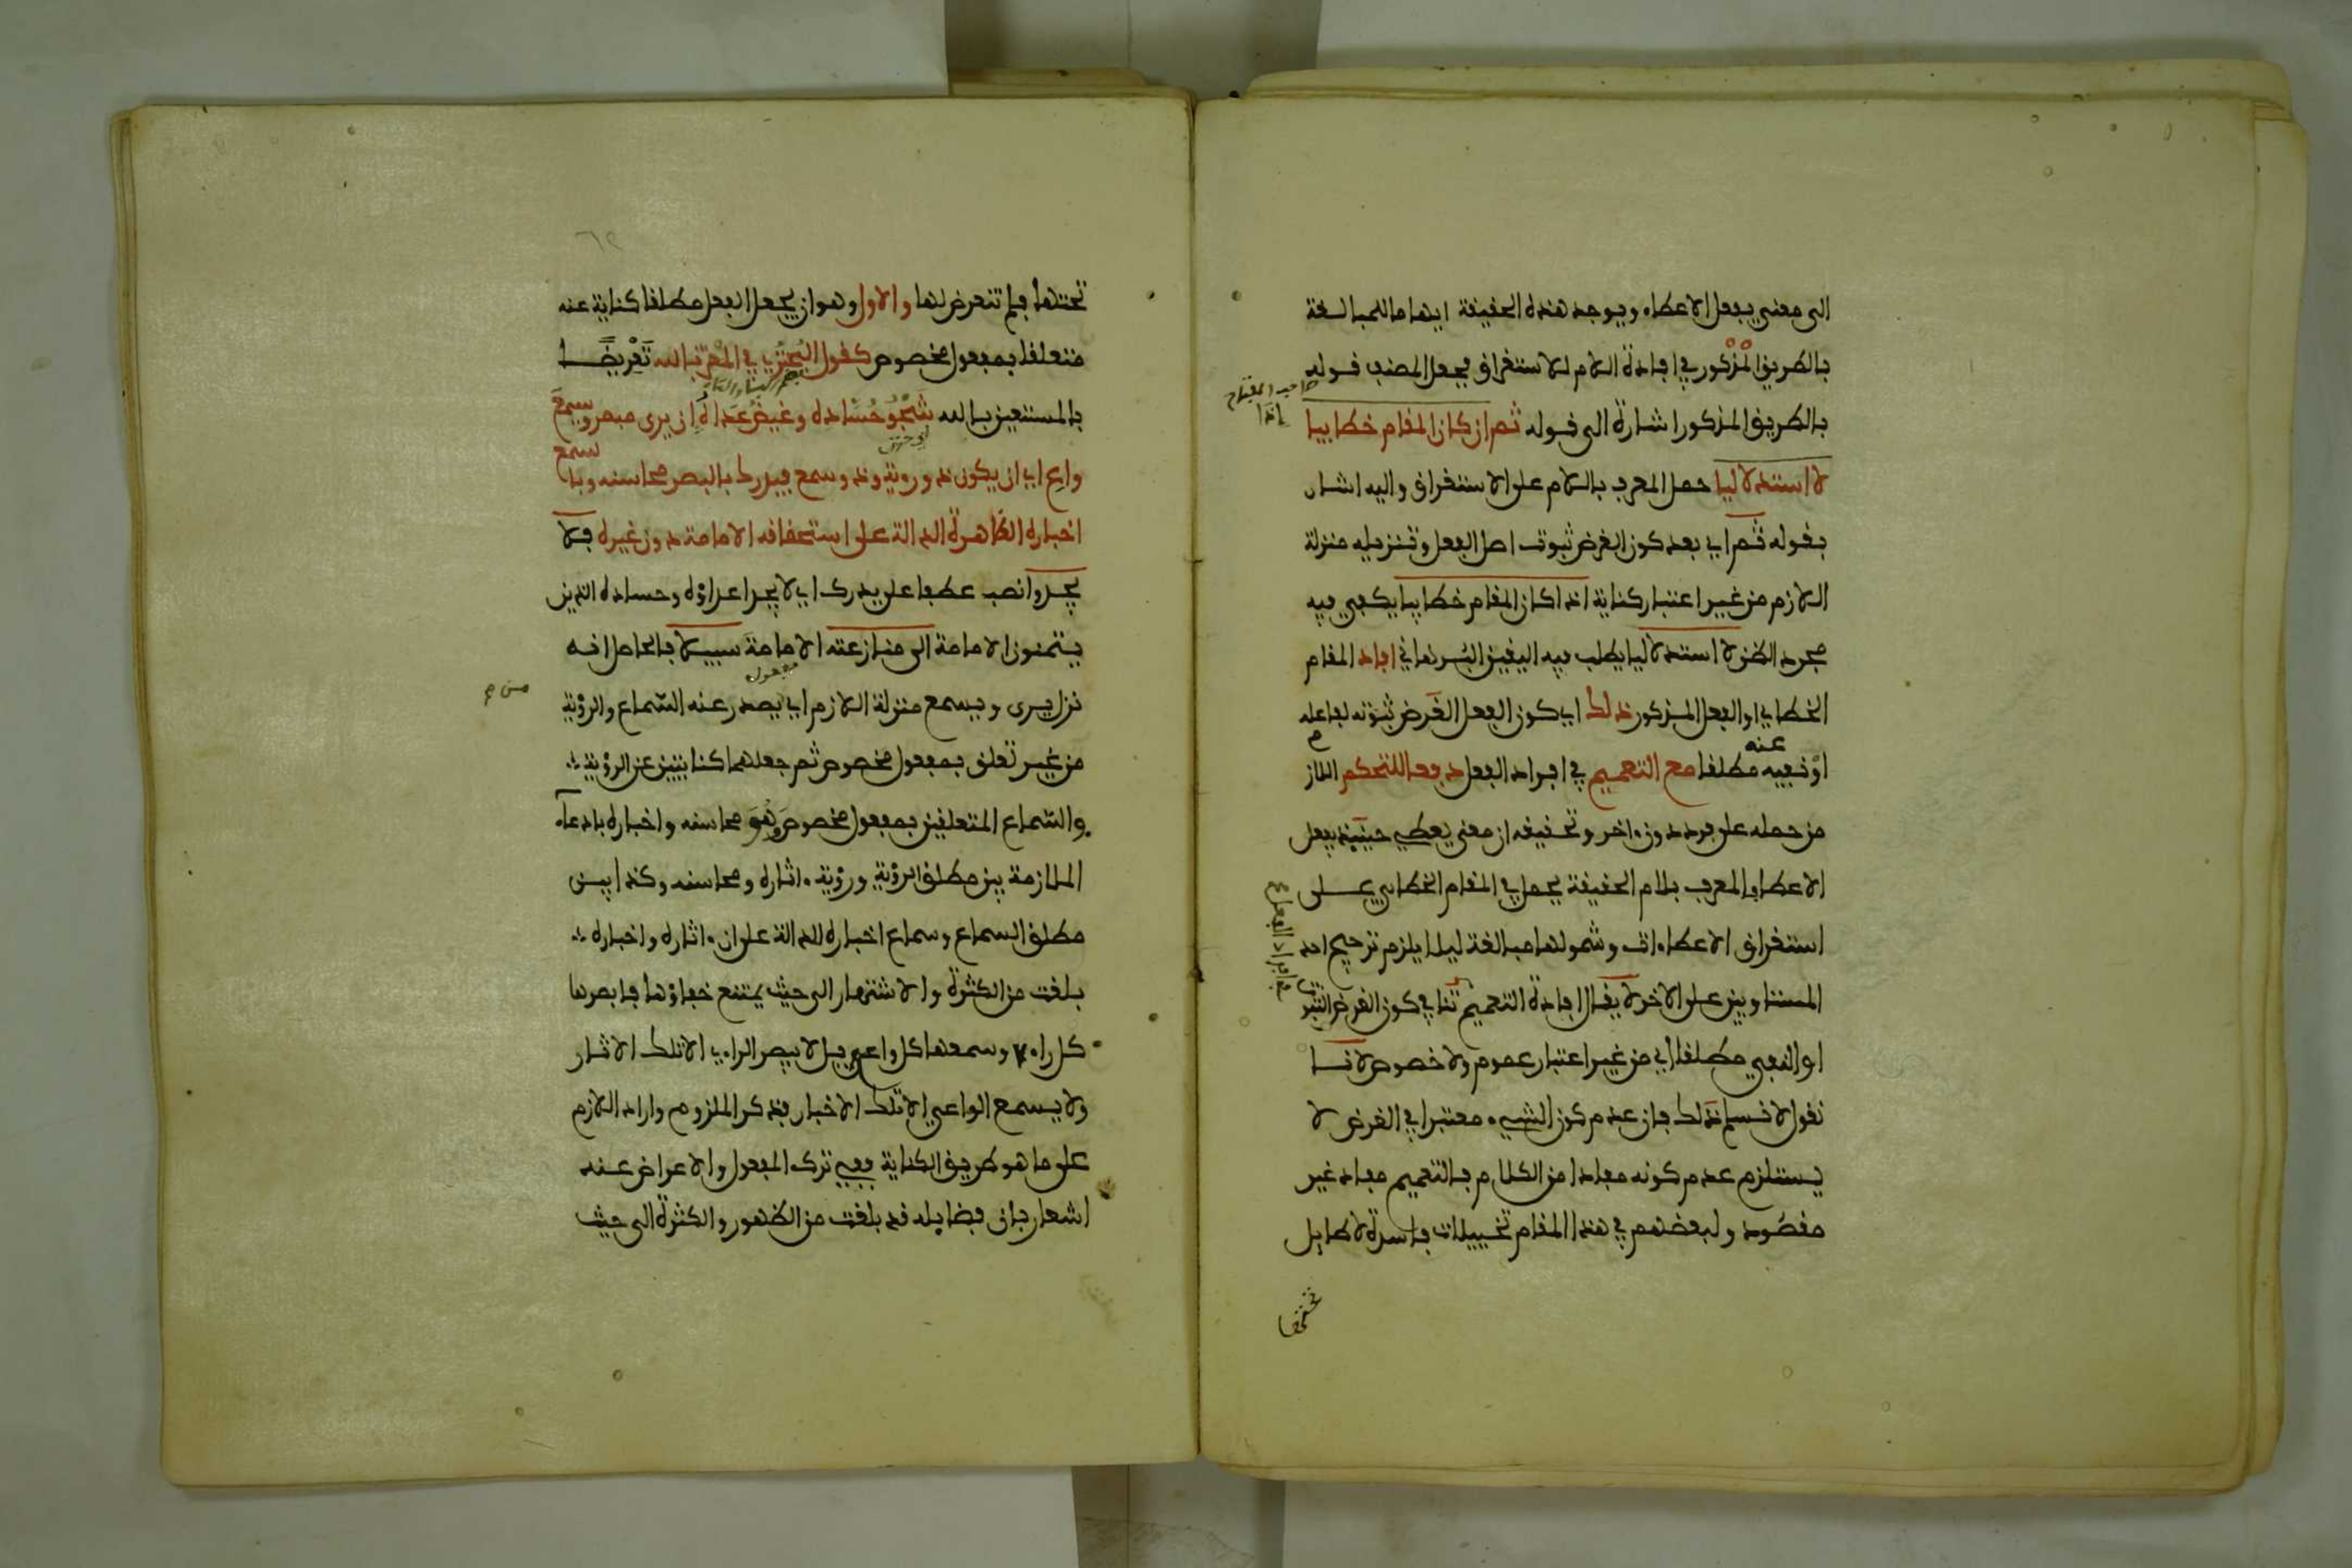 الى معنى يفعل الاعطاء ويوجد هذه الحقيقة ايهاما للمبالغة
بالطريق المذكور في افادة اللام للاستغراق فجعل المصنف قوله
بالطريق المذكور اشارة الى قوله ثم ان كان المقام خطابيا
لا استدلاليا حمل المعرف باللام على الاستغراق واليه اشار
بقوله ثم اي بعد كون الغرض ثبوت اصل الفعل وتنزيله منزلة
اللازم من غير اعتبار كناية اذا كان المقام خطابيا يكفي فيه
مجرد الظن لا استدلاليا يطلب فيه اليقين البرهاني افاد المقام
الخطابي او الفعل المذكور ذلك اي كون الفعل الغرض ثبوته لفاعله
او نفيه عنه مطلقا مع التعميم في افراد الفعل دفعا للتحكم اللاز
من حمله على فرد دون ءاخر وتحقيقه ان معنى يعطي حينئذ يفعل
الاعطا والمعرف بلام الحقيقة يحمل في المقام الخطابي على
استغراق الاعطاءات وشمولها مبالغة ليلا يلزم ترجيح احد
المتساويين على الاخر لا يقال افادة التعميم تنافي كون الغرض الثبوت
او النفي مطلقا اي من غير اعتبار عموم ولا خصوص لانا
نقول لا نسلم ذلك فان عدم كون الشيء معتبرا في الغرض لا
يستلزم عدم كونه مفادا من الكلام فالتعميم مفاد غير
مقصود ولبعضهم في هذا المقام تخييلات فاسدة لا طايل
صاحب المفتاح
في افراد الفعل
تحتها
تحتها فلم نتعرض لها والاول وهو ان يجعل الفعل مطلقا كناية عنه
متعلقا بمفعول مخصوص كقول البحتري في المعتز بالله تعريضا
بالمستعين بالله شجو حساده وغيظ عداه ان يرى مبصر ويسمع
واع اي ان يكون ذو روية وذو سمع فيدرك بالبصر محاسنه وبالسمع
اخباره الظاهرة الدالة على استحقاقه الامامة دون غيره فلا
يجدوا نصب عطفا على يدرك اي لا يجد اعداؤه وحساده الذين
يتمنون الامامة الى منازعته الامامة سبيلا فالحاصل انه
نزل يرى ويسمع منزلة اللازم اي يصدر عنه السماع والرؤية
من غير تعلق بمفعول مخصوص ثم جعلهما كنايتين عن الرؤية
والسماع المتعلقين بمفعول مخصوص وهو محاسنه واخباره بادعاء
الملازمة بين مطلق الرؤية ورؤية ءاثاره ومحاسنه وكذا بين
مطلق السماع وسماع اخباره للدالة على ان ءاثاره واخباره
بلغت من الكثرة والاشتهار الى حيث يمتنع خفاؤها فابصرها
كل راء وسمعها كل واع بل لا يبصر الراءي الا تلك الاثار
ولا يسمع الواعي الا تلك الاخبار فذكر الملزوم واراد اللازم
على ما هو طريق الكناية ففي ترك المفعول والاعراض عنه
اشعار بان فضايله قد بلغت من الظهور والكثرة الى حيث